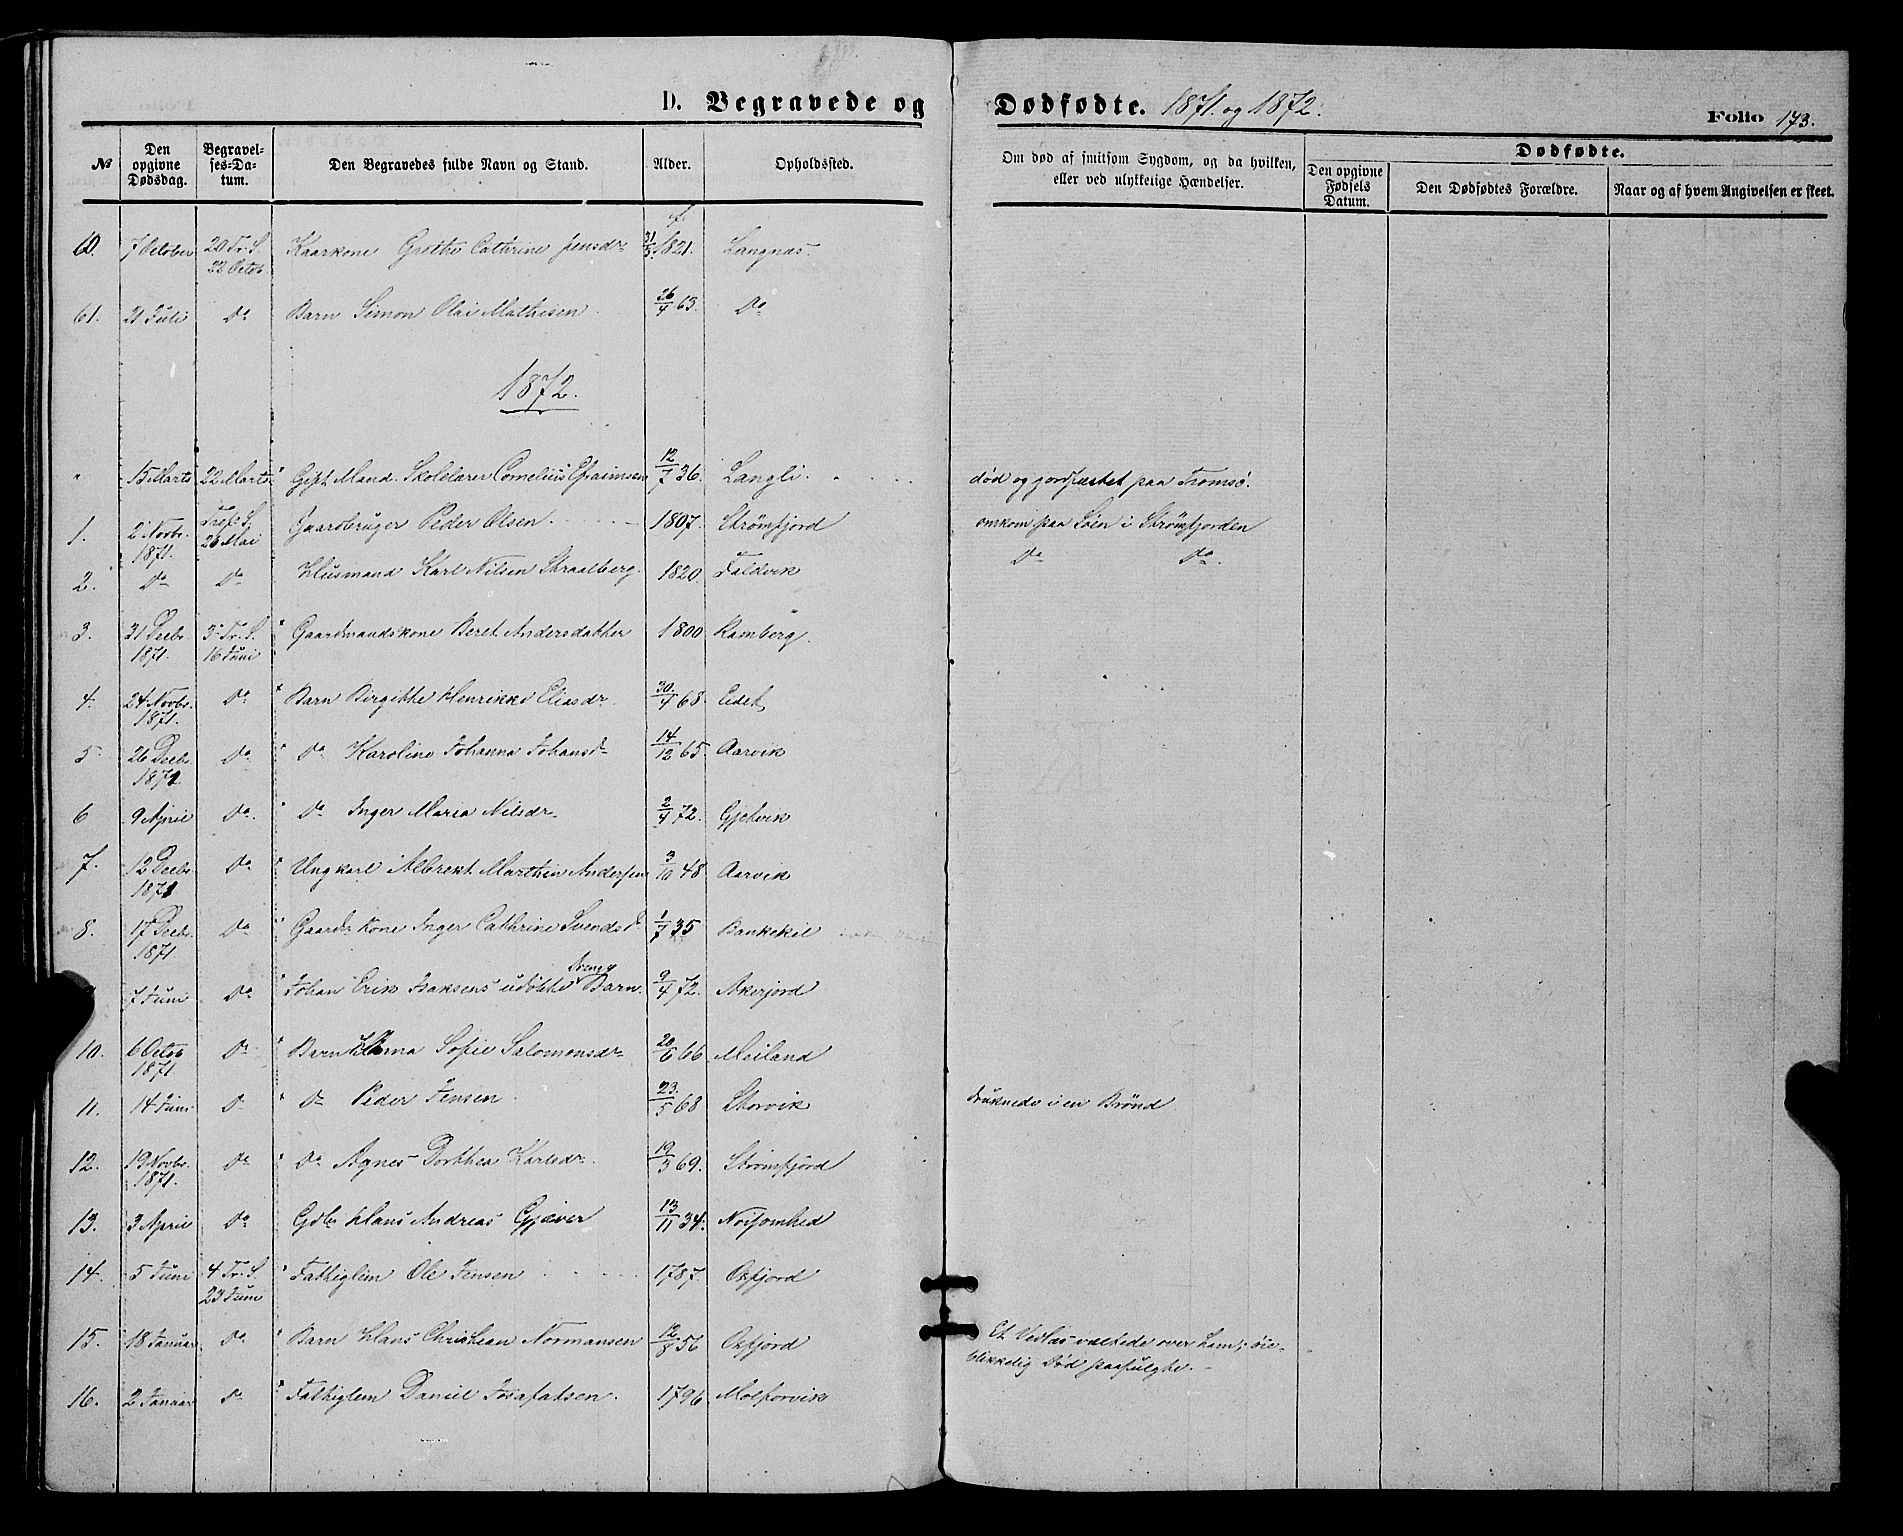 D. Begravede og Dødfødte. 1871. og 1872.
Folio 173.
№
Den opgivne Dødsdag.
Begravel-
ses-Da-
tum.
Den Begravedes fulde Navn og Stand.
Alder.
Opholdssted.
Om død af smitsom Sygdom, og da hvilken,
eller ved ulykkelige Hændelser.
Dødfødte.
Den opgivne
Fødsels
Datum.
Den Dødfødtes Forældre.
Naar og af hvem Angivelsen er skeet.
60. 7 October 20 Tr. S. 22 Octob. Kaarkone Grethe Cathrine Jensdr f. 31/5 1821. Langnæs
61. 21 Juli Do Barn Simon Olai Mathisen 26/4 63. Do
1872.
" 15 Marts 22 Marts Gift Mand. Skolelærer Cornelius Efraimsen 12/7 36. Langli. død og jordfæstet paa Tromsø.
1. 2 Novbr. 1871. Tref. S. 26 Mai Gaardbruger Peder Olsen 1807. Strömfjord omkom paa Söen i Strömfjorden
2. Do Do Husmand Karl Nilsen Straalberg. 1820. Faldvik Do Do
3. 31 Decbr 1871. 3 Tr. S. 16 Juni Gaardmandskone Beret Andersdatter 1800 Ramberg.
4. 24 Novbr. 1871. Do Barn Birgitte Henrikke Eliasdr 30/4 68. Eidet
5. 26 Decbr 1871 Do Do Karoline Johanna Johansdr 14/12 65. Aarvik
6 9 April Do Do Inger Maria Nilsdr. 2/4 72. Gjetvik
7. 12 Decbr 1871 Do Ungkarl Albrekt Marthin Andersen 3/10 48 Aarvik
8. 17 Decbr 1871 Do Gaardm. Kone Inger Cathrine Svendsdr 1/7 35 Bankekil
7 Juni Do Johan Erik Isaksens udöbte Drenge Barn. 9/4 72. Akerjord
10. 6 Octob 1871 Do Barn Anna Sofie Salomonsdr 20/6 66 Meiland
11. 14 Juni Do Do Peder Jensen 23/5 68 Storvik druknede i en Brönd
12. 19 Novbr. 1871. Do Do Agnes Dorthea Karlsdr. 19/3 69. Strömfjord
13. 3 April Do Gdbr Hans Andreas Gjæver 13/11 34. Noisomhed
14. 5 Juni 4 Tr. S. 23 Juni Fattiglem Ole Jensen 1787. Oxfjord
15. 18 Januar Do Barn Hans Christian Normansen 12/8 56 Oxfjord Et Vedlæs væltede over ham; öie-
blikkelig Død paafulgte.
16. 2 Januar Do Fattiglem Daniel Josafatsen. 1796 Molforvik